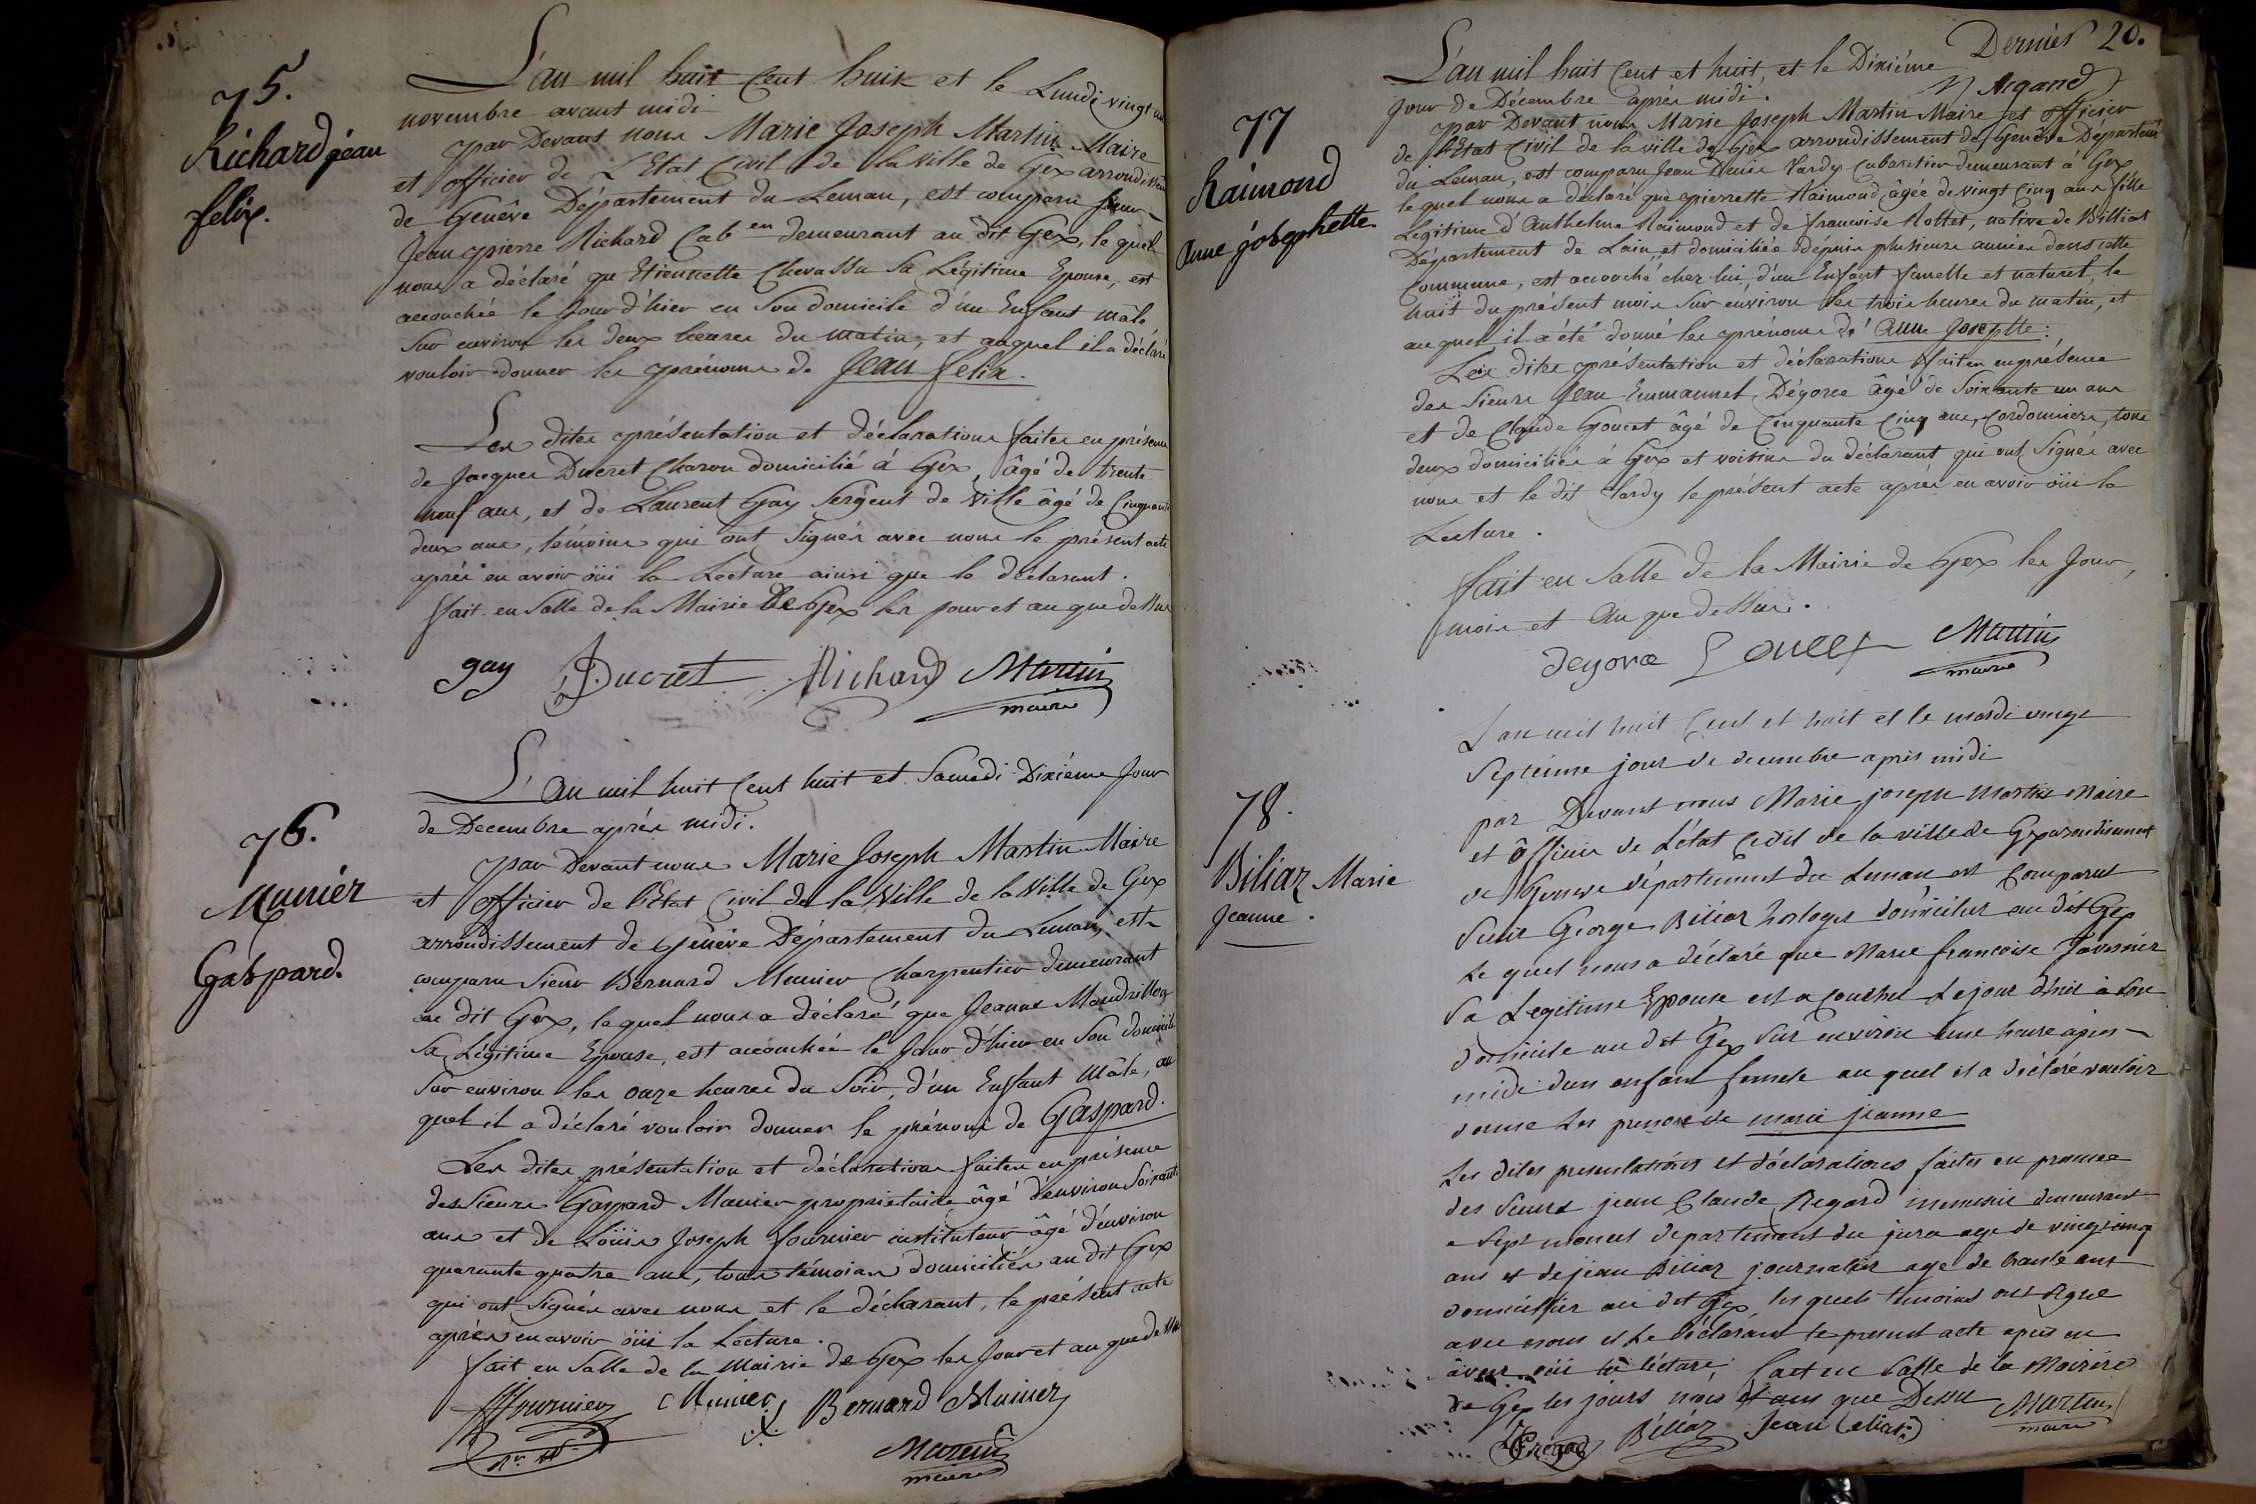 75.
Richard jean
felix.
L'an mil huit Cent huit et le Lundi vingt un
novembre avant midi
par Devant nous Marie Joseph Martin Maire
et officier de L'Etat Civil de la Ville de Gex arrondissem
de Genêve Département du Leman, est comparu sieur
Jean pierre Richard Cab en demeurant au dit Gex, le quel
nous a déclaré qu Etiennette Chevassu Sa Légitime Epouse, est
accouchée le Jour d'hier en Son domicile d'un Enfant mâle
Sur environ les deux heures du matin, et auquel il a déclaré
vouloir donner les prénoms de Jean felix.
Les dites présentation et déclaration faites en présence
de Jacques Ducret Charon domicilié à Gex, âgé de trente
neuf ans, et de Laurent Gay Sergent de Ville âgé de Cinquante
deux ans, témoins qui ont Signés avec nous le présent acte
après en avoir öüi la Lecture ainsi que le déclarant.
fait en Salle de la Mairie De Gex les jour et an que dessus
gay Ducret Richard Martin
maire
76.
Munier
Gaspard.
L'an mil huit Cent huit et Samedi Dixième Jour
de Decembre après midi.
par Devant nous Marie Joseph Martin Maire
et officier de l'Etat Civil de la Ville de la Ville de Gex
arrondissement de Genève Département du Leman, est
comparu Sieur Bernard Munier Charpentier demeurant
au dit Gex, lequel nous a déclaré que Jeanne Mandrillon
Sa Légitime Epouse, est accouchée le Jour d'hier en Son domicile
Sur environ les onze heures du Soir, d'un Enfant Mâle, au
quel il a déclaré vouloir donner le prénom de Gaspard.
Les dites présentation et déclaration faites en présence
des Sieurs Gaspard Munier propriétaire âgé d'environ Soixante
ans et de Loüis Joseph fournier instituteur âgé d'environ
quarante quatre ans, tous témoins domiciliés au dit Gex
qui ont Signés avec nous et le déclarant, le présent acte
après en avoir öüi la Lecture.
fait en Salle de la Mairie de Gex les Jour et an que dessus
fournier Munier Bernard Munier
Martin
maire
Dernier 20.
N Argand
77
Raimond
Anne josephette
L'an mil huit Cent et huit, et le Dixième
Jour de Décembre après midi.
par Devant nous Marie Joseph Martin Maire et officier
de l'Etat Civil de la ville de Gex arrondissement de Genève Départemt
du Leman, est comparu Jean Denis Vardy Cabaretier demeurant à Gex
lequel nous a déclaré que pierrette Raimond âgée de vingt Cinq ans fille
Légitime d'Anthelme Raimond et de francoise Rottet, native de Billiat
Département de Lain, et domiciliée depuis plusieurs années dans cette
Commune, est accouché chez lui, d'un Enfant femelle et naturel, le
huit du présent mois Sur environ les trois heures du matin, et
au quel il a été donné les prénoms d' Anne Josephte:
Les dites présentation et déclaration faites en présence
des Sieurs Jean Emmanuel Dégorce âgé de Soixante un ans
et de Claude Goucet âgé de Cinquante Cinq ans, Cordonniers, tous
deux domiciliés à Gex et voisins du déclarant qui ont Signés avec
nous et le dit Vardy le présent acte après en avoir öüi la
Lecture.
fait en Salle de la Mairie de Gex les Jour,
mois et an que dessus.
Martin
maire
78.
Biliaz Marie
Jeanne.
L'an mil huit Cent et huit et le mardi vingt
Septeime jour de decembre après midi
par Devant nous Marie joseph Martin Maire
et officier de L'état Civil de la ville de Gex arondisement
de Geneve département du Leman est Comparut
Sieur George Biliaz horloger domicilier au dit Gex
Le quel nous a déclaré que Marie francoise Tavernier
Sa Legitime Epouse est acouchee Le jour d'hier à Son
domicile au dit Gex Sur environ une heure après
midi dun enfant femele au quel il a déclaré vouloir
donne Les prenom de marie jeanne
Les dites presentations et déclarations faites en presence
des Sieurs jean Claude Regard demeurant
a Sept moncel département du jura age de vingt cinq
ans et de jean Biliaz journalier age de trante ans
domicillier au dit Gex, les quels temoins ont signe
avec nous et Le déclarant le present acte apres en
avoir oüi la lécture, fait en Salle de la Mairie
de Gex les jours mois et ans que Dessu
Béliaz Jean Martin
maire